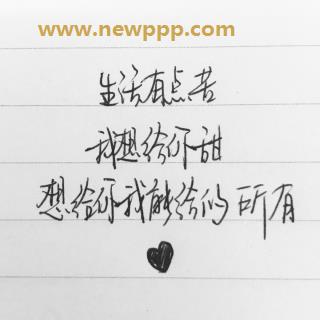 www.newppp.com
生活有点苦
我想给你甜
想给你我能给的所有